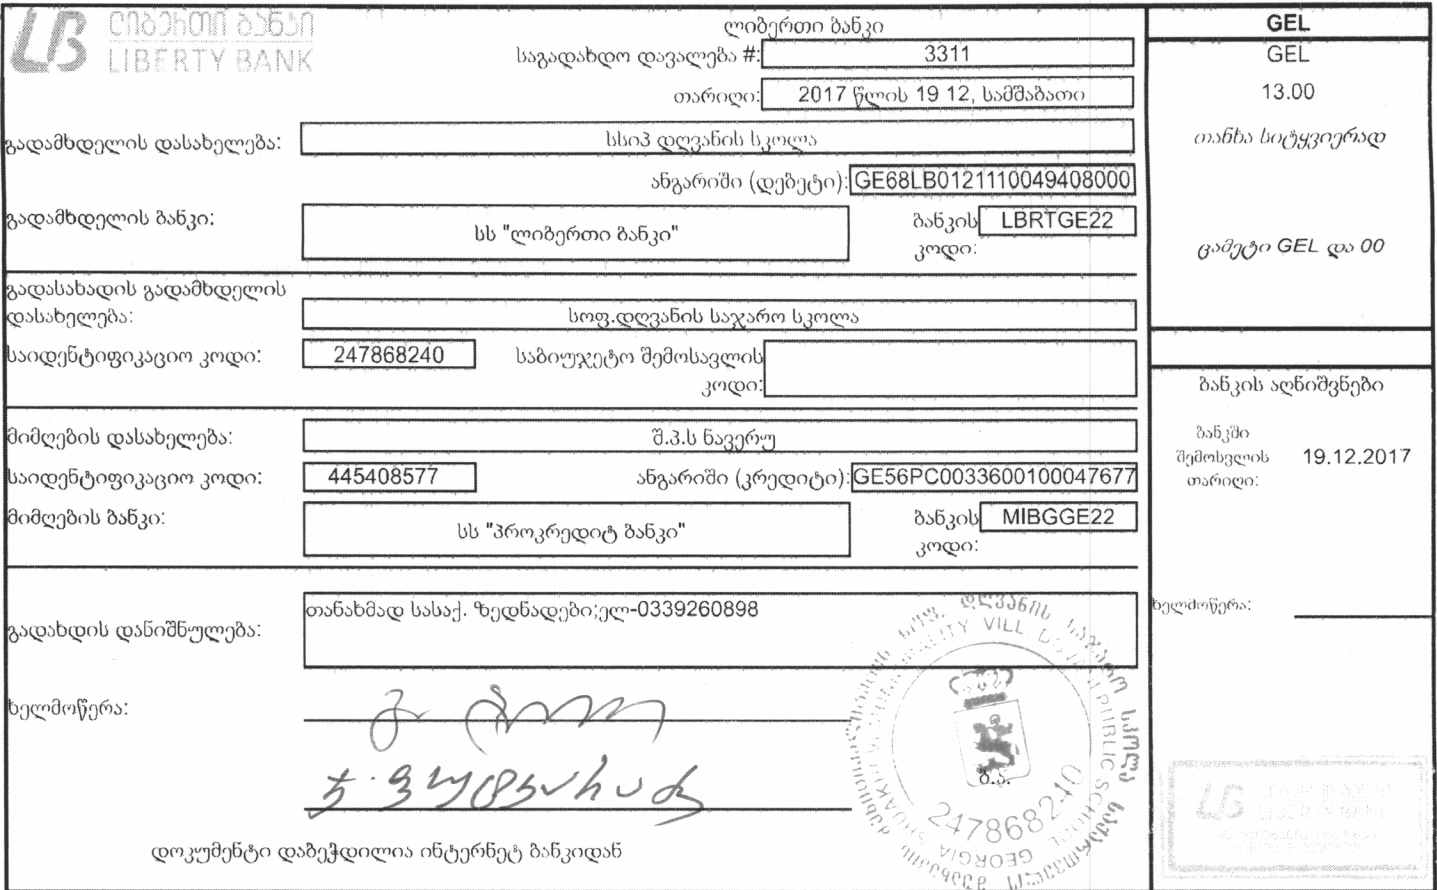 ლიბერთი ბანკი
LIBERTY BANK
ლიბერთი ბანკი
საგადახდო დავალება #: 3311
თარიღი: 2017 წლის 19 12, სამშაბათი
გადამხდელის დასახელება: სსიპ დღვანის სკოლა
ანგარიში (დებეტი): GE68LB0121110049408000
გადამხდელის ბანკი: სს "ლიბერთი ბანკი"
ბანკის კოდი: LBRTGE22
გადასახადის გადამხდელის
დასახელება: სოფ.დღვანის საჯარო სკოლა
საიდენტიფიკაციო კოდი: 247868240
საბიუჯეტო შემოსავლის
კოდი:
მიმღების დასახელება: შ.პ.ს ნავერუ
საიდენტიფიკაციო კოდი: 445408577
ანგარიში (კრედიტი): GE56PC0033600100047677
მიმღების ბანკი: სს "პროკრედიტ ბანკი"
ბანკის კოდი: MIBGGE22
თანახმად სასაქ. ზედნადები;ელ-0339260898
გადახდის დანიშნულება:
ხელმოწერა:
ბ.ა.
247868240
GEORGIA
VILL.
PUBLIC SCHOOL
დოკუმენტი დაბეჭდილია ინტერნეტ ბანკიდან
GEL
GEL
13.00
თანხა სიტყვიერად
ცამეტი GEL და 00
ბანკის აღნიშვნები
ბანკში
შემოსვლის 19.12.2017
თარიღი:
ხელმოწერა:
LIBERTY BANK